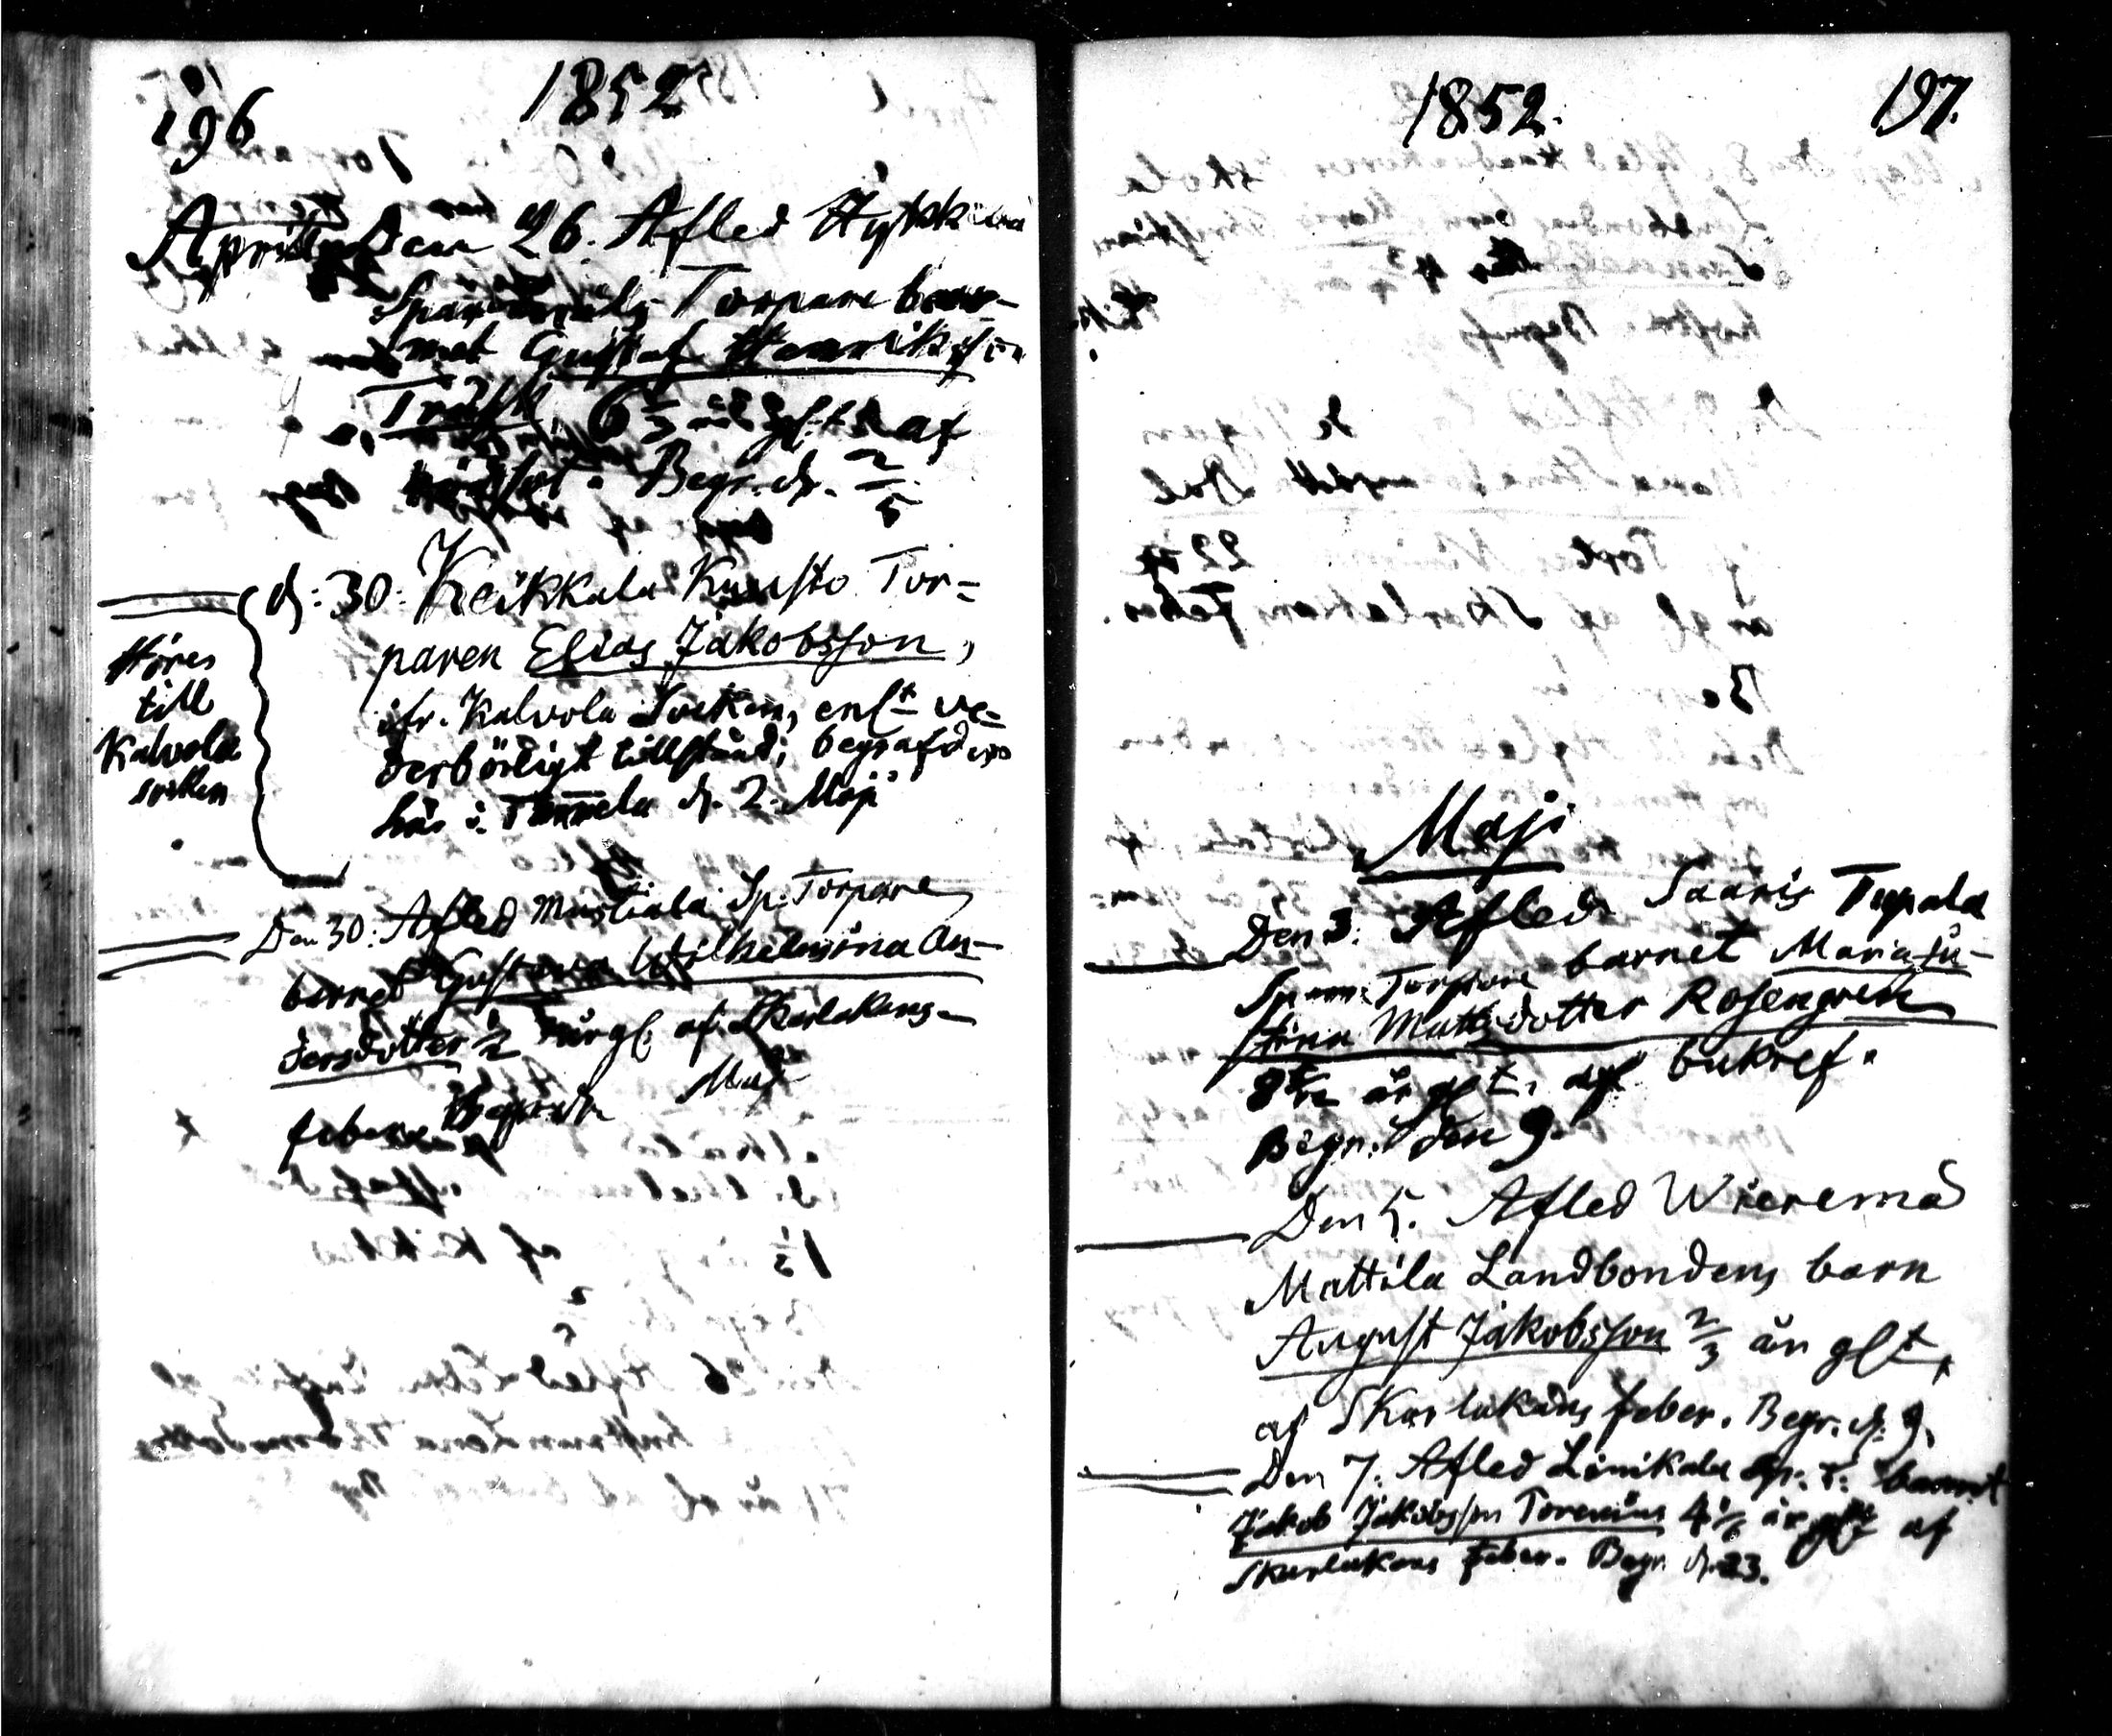 196
1852
April Den 26. Afled Hykkilä
Torpare bar-
net Gustaf Henriksson
Träsk 6 1/3 år gl:t af
Begr. d. 2/5
d: 30: Keikkala Kuusto Tor-
paren Elias Jakobsson,
ifr. Kalvola Socken, enl:t ve-
derbörligt tillstånd, begrafdes
här i Tammela d. 2. Maji
Höres
till
Kalvola
socken
Den 30: Afled Mustiala Sp: Torpare
barnet Gustava Wilhelmina An-
dersdotter 1/2 år gl: af Skarlakans-
feber Begr. d. Maji
1852.
197.
Maji
Den 3: Afled Saaris Tupala
Torpare barnet Maria Ju-
stina Mattsdotter Rosengren
år gl:t, af bukref.
Begr: den 9.
Den 5. Afled Wieremä
Mattila Landbondens barn
August Jakobsson 2/3 år gl:t,
af Skarlakans feber. Begr. d: 9.
Den 7: Afled Linikala Sp: T: barnet
Jakob Jakobsson Torenius 4 1/6 år gl:t af
Skarlakans feber. Begr. d. 23.